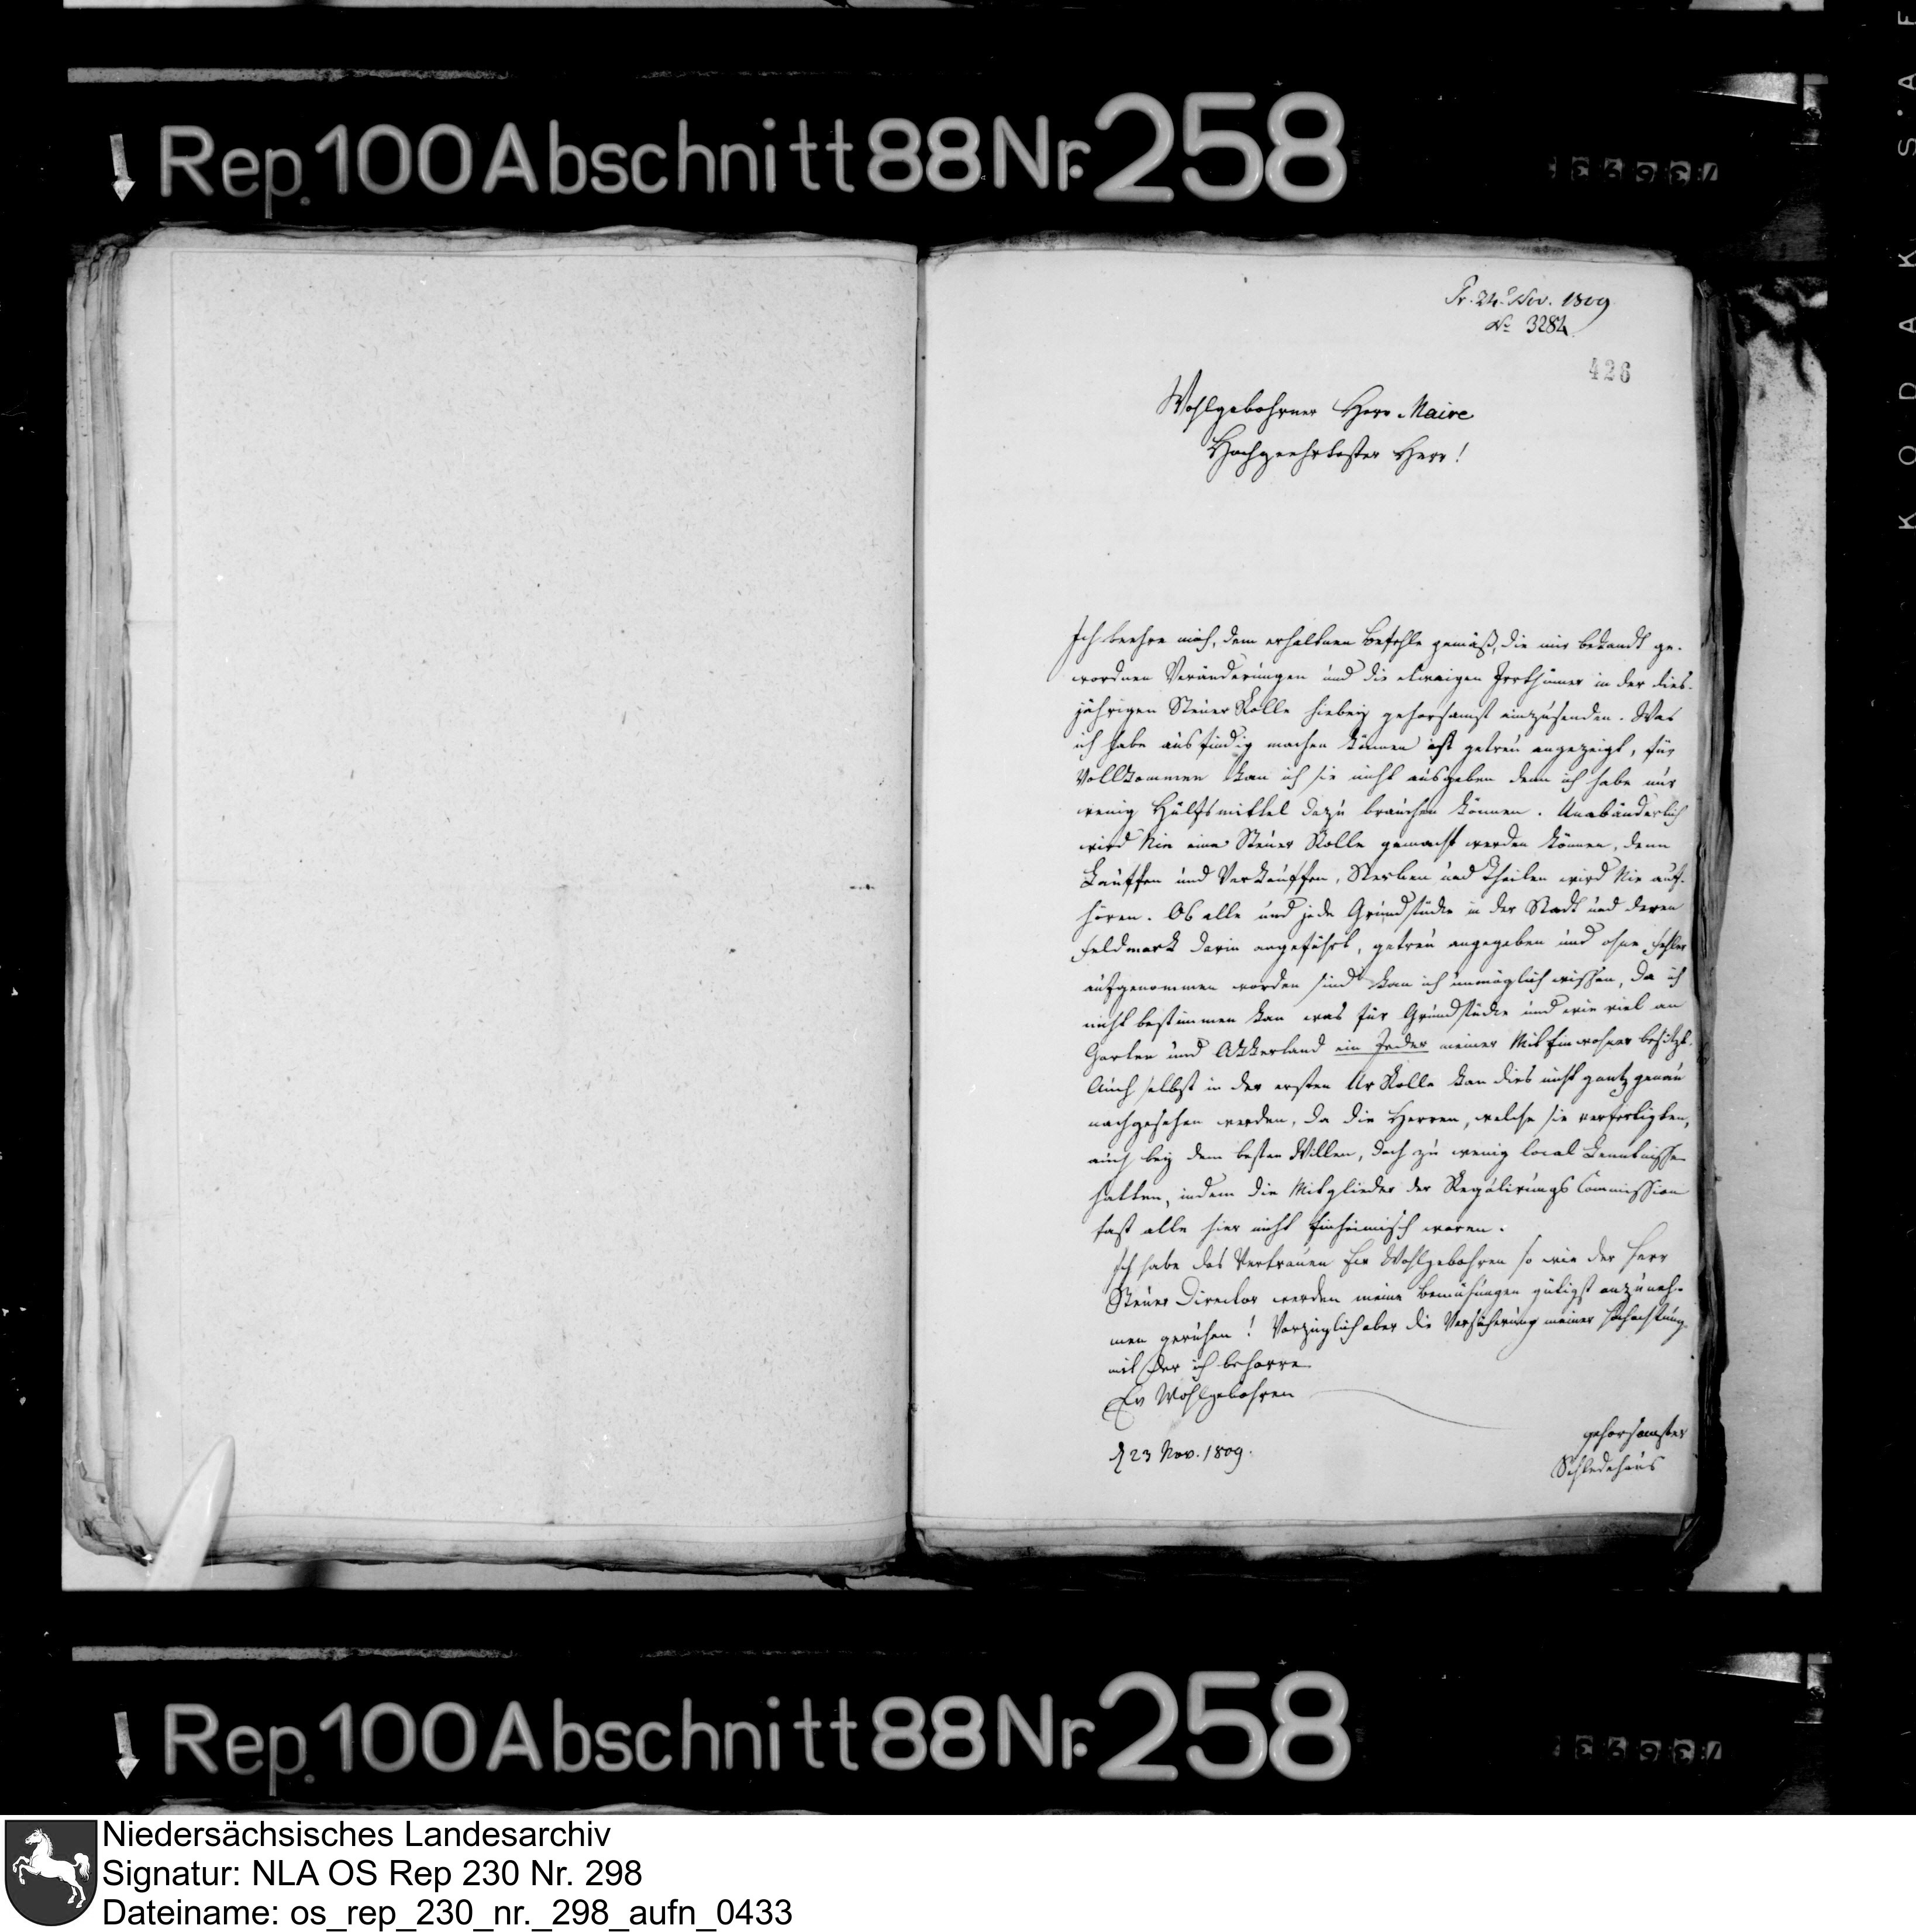 Rep. 100 Abschnitt 88 Nr. 258
Pr. 24. Nov. 1809
No 3284
426
Wohlgebohrner Herr Maire
Hochgeehrtester Herr!
Ich beehre mich, dem erhaltnen Befehle gemäß, die mir bekandt ge-
wordnen Veränderungen und die etwaigen Irrthümer in der dies-
jährigen Steuer Rolle hiebey gehorsamst einzusenden. Was
ich habe ausfindig machen können ist getreu angezeigt, für
Vollkommen kan ich sie nicht ausgeben denn ich habe nur
wenig Hülfsmittel dazu brauchen können. Unabänderlich
wird Nie eine Steuer Rolle gemacht werden können, denn
Kauffen und Verkauffen, Sterben und Theilen wird Nie auf-
hören. Ob alle und jede Grundstücke in der Stadt und deren
Feldmark darin angeführt, getreu angegeben und ohne Fehler
aufgenommen worden sind kan ich unmöglich wissen, da ich
nicht bestimmen kan was für Grundstücke und wie viel an
Garten und Akkerland ein Jeder meiner Mit Einwohner besitzt.
Auch selbst in der ersten Ur Rolle kan dies nicht gantz genau
nachgesehen werden, da die Herren, welche sie verfertigten,
auch bey dem besten Willen, doch zu wenig local Kenntnisse
hatten, indem die Mitglieder der Regulirungs Commission
fast alle hier nicht Einheimisch waren.
Ich habe das Vertrauen Ew Wohlgebohren so wie der Herr
Steuer Director werden meine Bemühungen gütigst anzuneh-
men geruhen! Vorzüglich aber die Versicherung meiner Hochachtung
mit der ich beharre
Ew Wohlgebohren
d 23 Nov. 1809.
gehorsamster
Schledehaus
Rep. 100 Abschnitt 88 Nr. 258
KODAK S.A.F
Niedersächsisches Landesarchiv
Signatur: NLA OS Rep 230 Nr. 298
Dateiname: os_rep_230_nr._298_aufn_0433